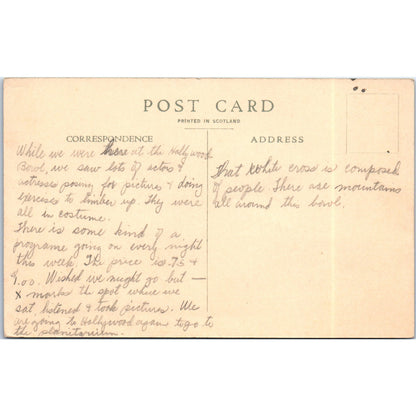 POST CARD
PRINTED IN SCOTLAND
CORRESPONDENCE
While we were there at the Hollywood
Bowl, we saw lots of actors &
actresses posing for pictures & doing
exercises to limber up. They were
all in costume.
There is some kind of a
programe going on every night
this week. The price is .75 &
Wished we might go but —
X marks the spot where we
sat, listened & took pictures. We
are going to Hollywood again to go to
the planetarium.
ADDRESS
That white cross is composed
of people. There are mountains
all around this bowl.